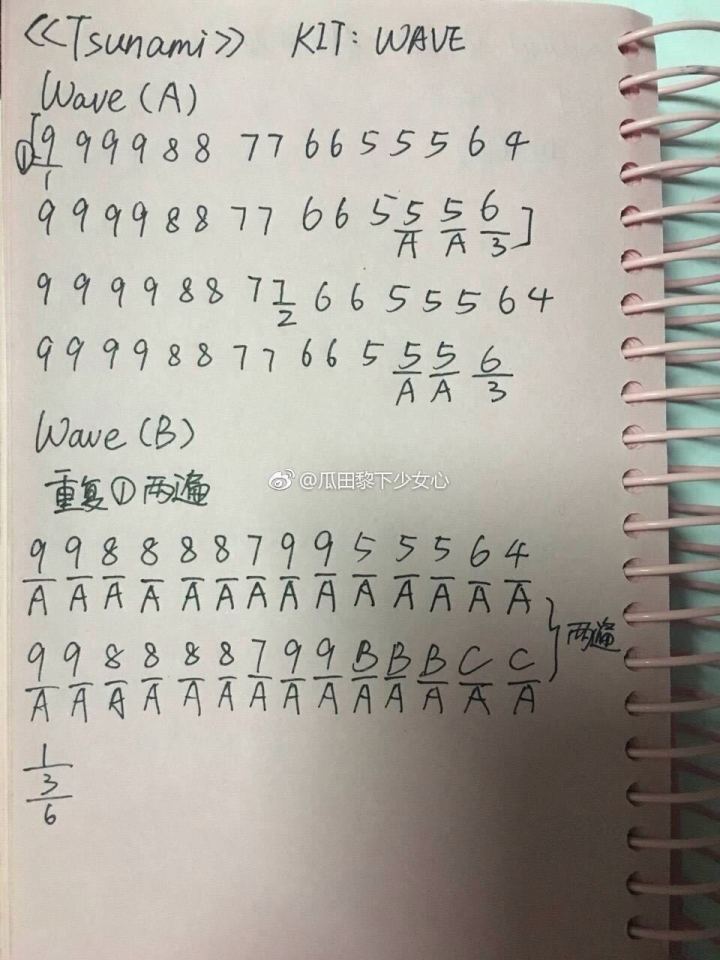 《Tsunami》 KIT: WAVE
Wave (A)
①[9/1 9 9 9 8 8 7 7 6 6 5 5 5 6 4
9 9 9 9 8 8 7 7 6 6 5 5/A 5/A 6/3]
9 9 9 9 8 8 7 7/2 6 6 5 5 5 6 4
9 9 9 9 8 8 7 7 6 6 5 5/A 5/A 6/3
Wave (B)
重复① 两遍
@瓜田黎下少女心
9/A 9/A 8/A 8/A 8/A 8/A 7/A 9/A 9/A 5/A 5/A 5/A 6/A 4/A
9/A 9/A 8/A 8/A 8/A 8/A 7/A 9/A 9/A B/A B/A B/A C/A C/A
} 两遍
1/3/6